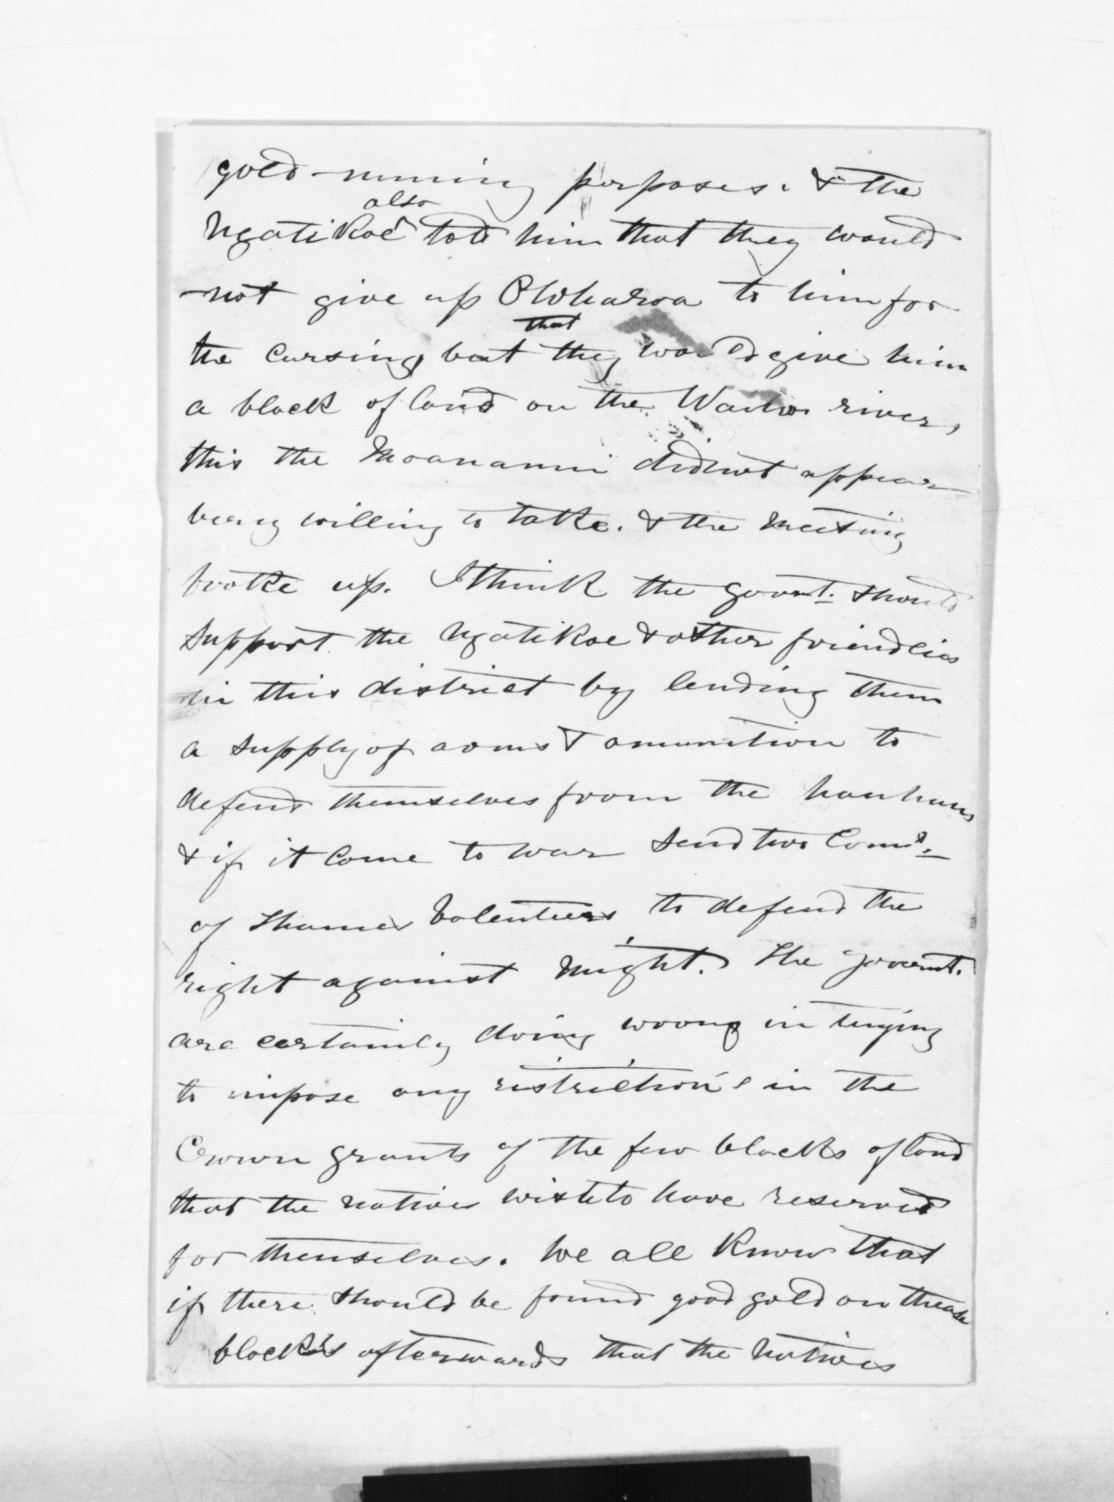 gold-mining porposes. & the
Ngatikoe also told him that they would
not give up Owharoa to him for
the cursing, but that they would give him
a block of land on the Waihou river,
this the Moananui didnot appear
very willing to take. & the meeting
broke up. I think the govmt. should
support the Ngatikoe & other friendlies
in this district by lending them
a supply of arms & amunition to
defend themselves from the hauhaus
& if it come to war send two Coms.
of Thames Volenteers, to defend the
right against might. The goverment.
are certainly doing wrong in trying
to impose any ristrictions in the
Crown grants of the few blocks of land
that the natives wish to have reserved
for themselves. We all know that
if there should be found good gold on these
blocks afterwards that the Natives